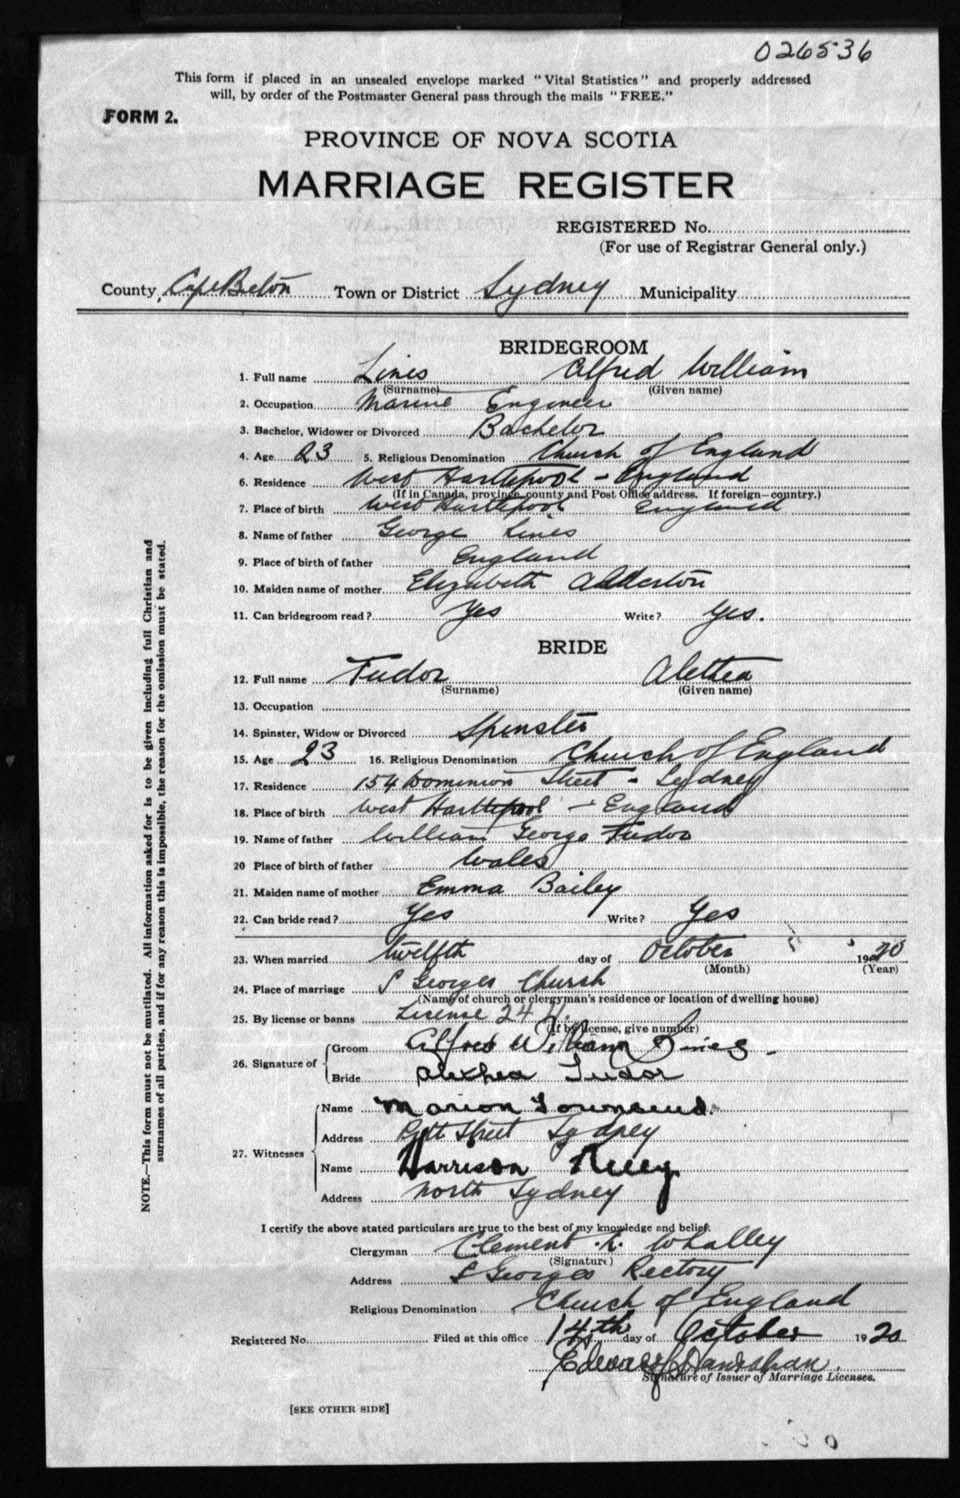 026536
This form if placed in an unsealed envelope marked "Vital Statistics" and properly addressed
will, by order of the Postmaster General pass through the mails "FREE."
FORM 2.
PROVINCE OF NOVA SCOTIA
MARRIAGE REGISTER
REGISTERED No.
(For use of Registrar General only.)
County, Cape Breton Town or District Sydney Municipality
BRIDEGROOM
1. Full name Lines Alfred William
(Surname) (Given name)
2. Occupation Marine Engineer
3. Bachelor, Widower or Divorced Bachelor
4. Age 23 5. Religious Denomination Church of England
6. Residence West Hartlepool - England
(If in Canada, province, county and Post Office address. If foreign—country.)
7. Place of birth West Hartlepool England
8. Name of father George Lines
9. Place of birth of father England
10. Maiden name of mother Elizabeth Alderton
11. Can bridegroom read? Yes Write? Yes.
BRIDE
12. Full name Tudor Alethea
(Surname) (Given name)
13. Occupation
14. Spinster, Widow or Divorced Spinster
15. Age 23 16. Religious Denomination Church of England
17. Residence 154 Dominion Street - Sydney
18. Place of birth West Hartlepool - England
19. Name of father William George Tudor
20 Place of birth of father Wales
21. Maiden name of mother Emma Bailey
22. Can bride read? Yes Write? Yes
23. When married twelfth day of October 1920
(Month) (Year)
24. Place of marriage S Georges Church
(Name of church or clergyman's residence or location of dwelling house)
25. By license or banns License 24
(If by license, give number)
26. Signature of Groom Alfred William Lines
Bride Alethea Tudor
27. Witnesses Name Marion Townsend
Address Street Sydney
Name Harrison
Address North Sydney
I certify the above stated particulars are true to the best of my knowledge and belief.
Clergyman Clement . Whalley
(Signature)
Address S Georges Rectory
Religious Denomination Church of England
Registered No. Filed at this office 14th day of October 1920
Signature of Issuer of Marriage Licenses.
[SEE OTHER SIDE]
NOTE.—This form must not be mutilated. All information asked for is to be given including full Christian and
surnames of all parties, and if for any reason this is impossible, the reason for the omission must be stated.